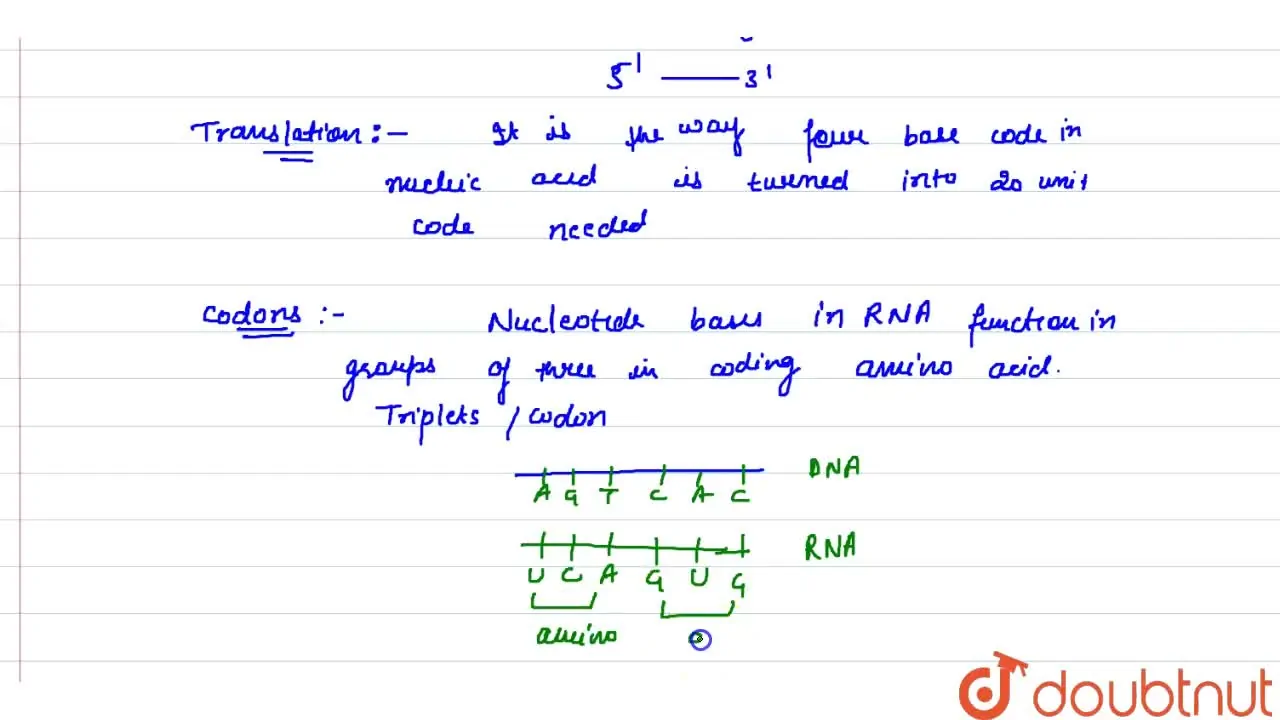 5' — 3'
Translation :- It is the way four base code in
nucleic acid is turned into 20 unit
code needed
Codons :- Nucleotide bases in RNA function in
groups of three in coding amino acid.
Triplets / codon
DNA
A G T C A C
RNA
U C A G U G
amino
doubtnut